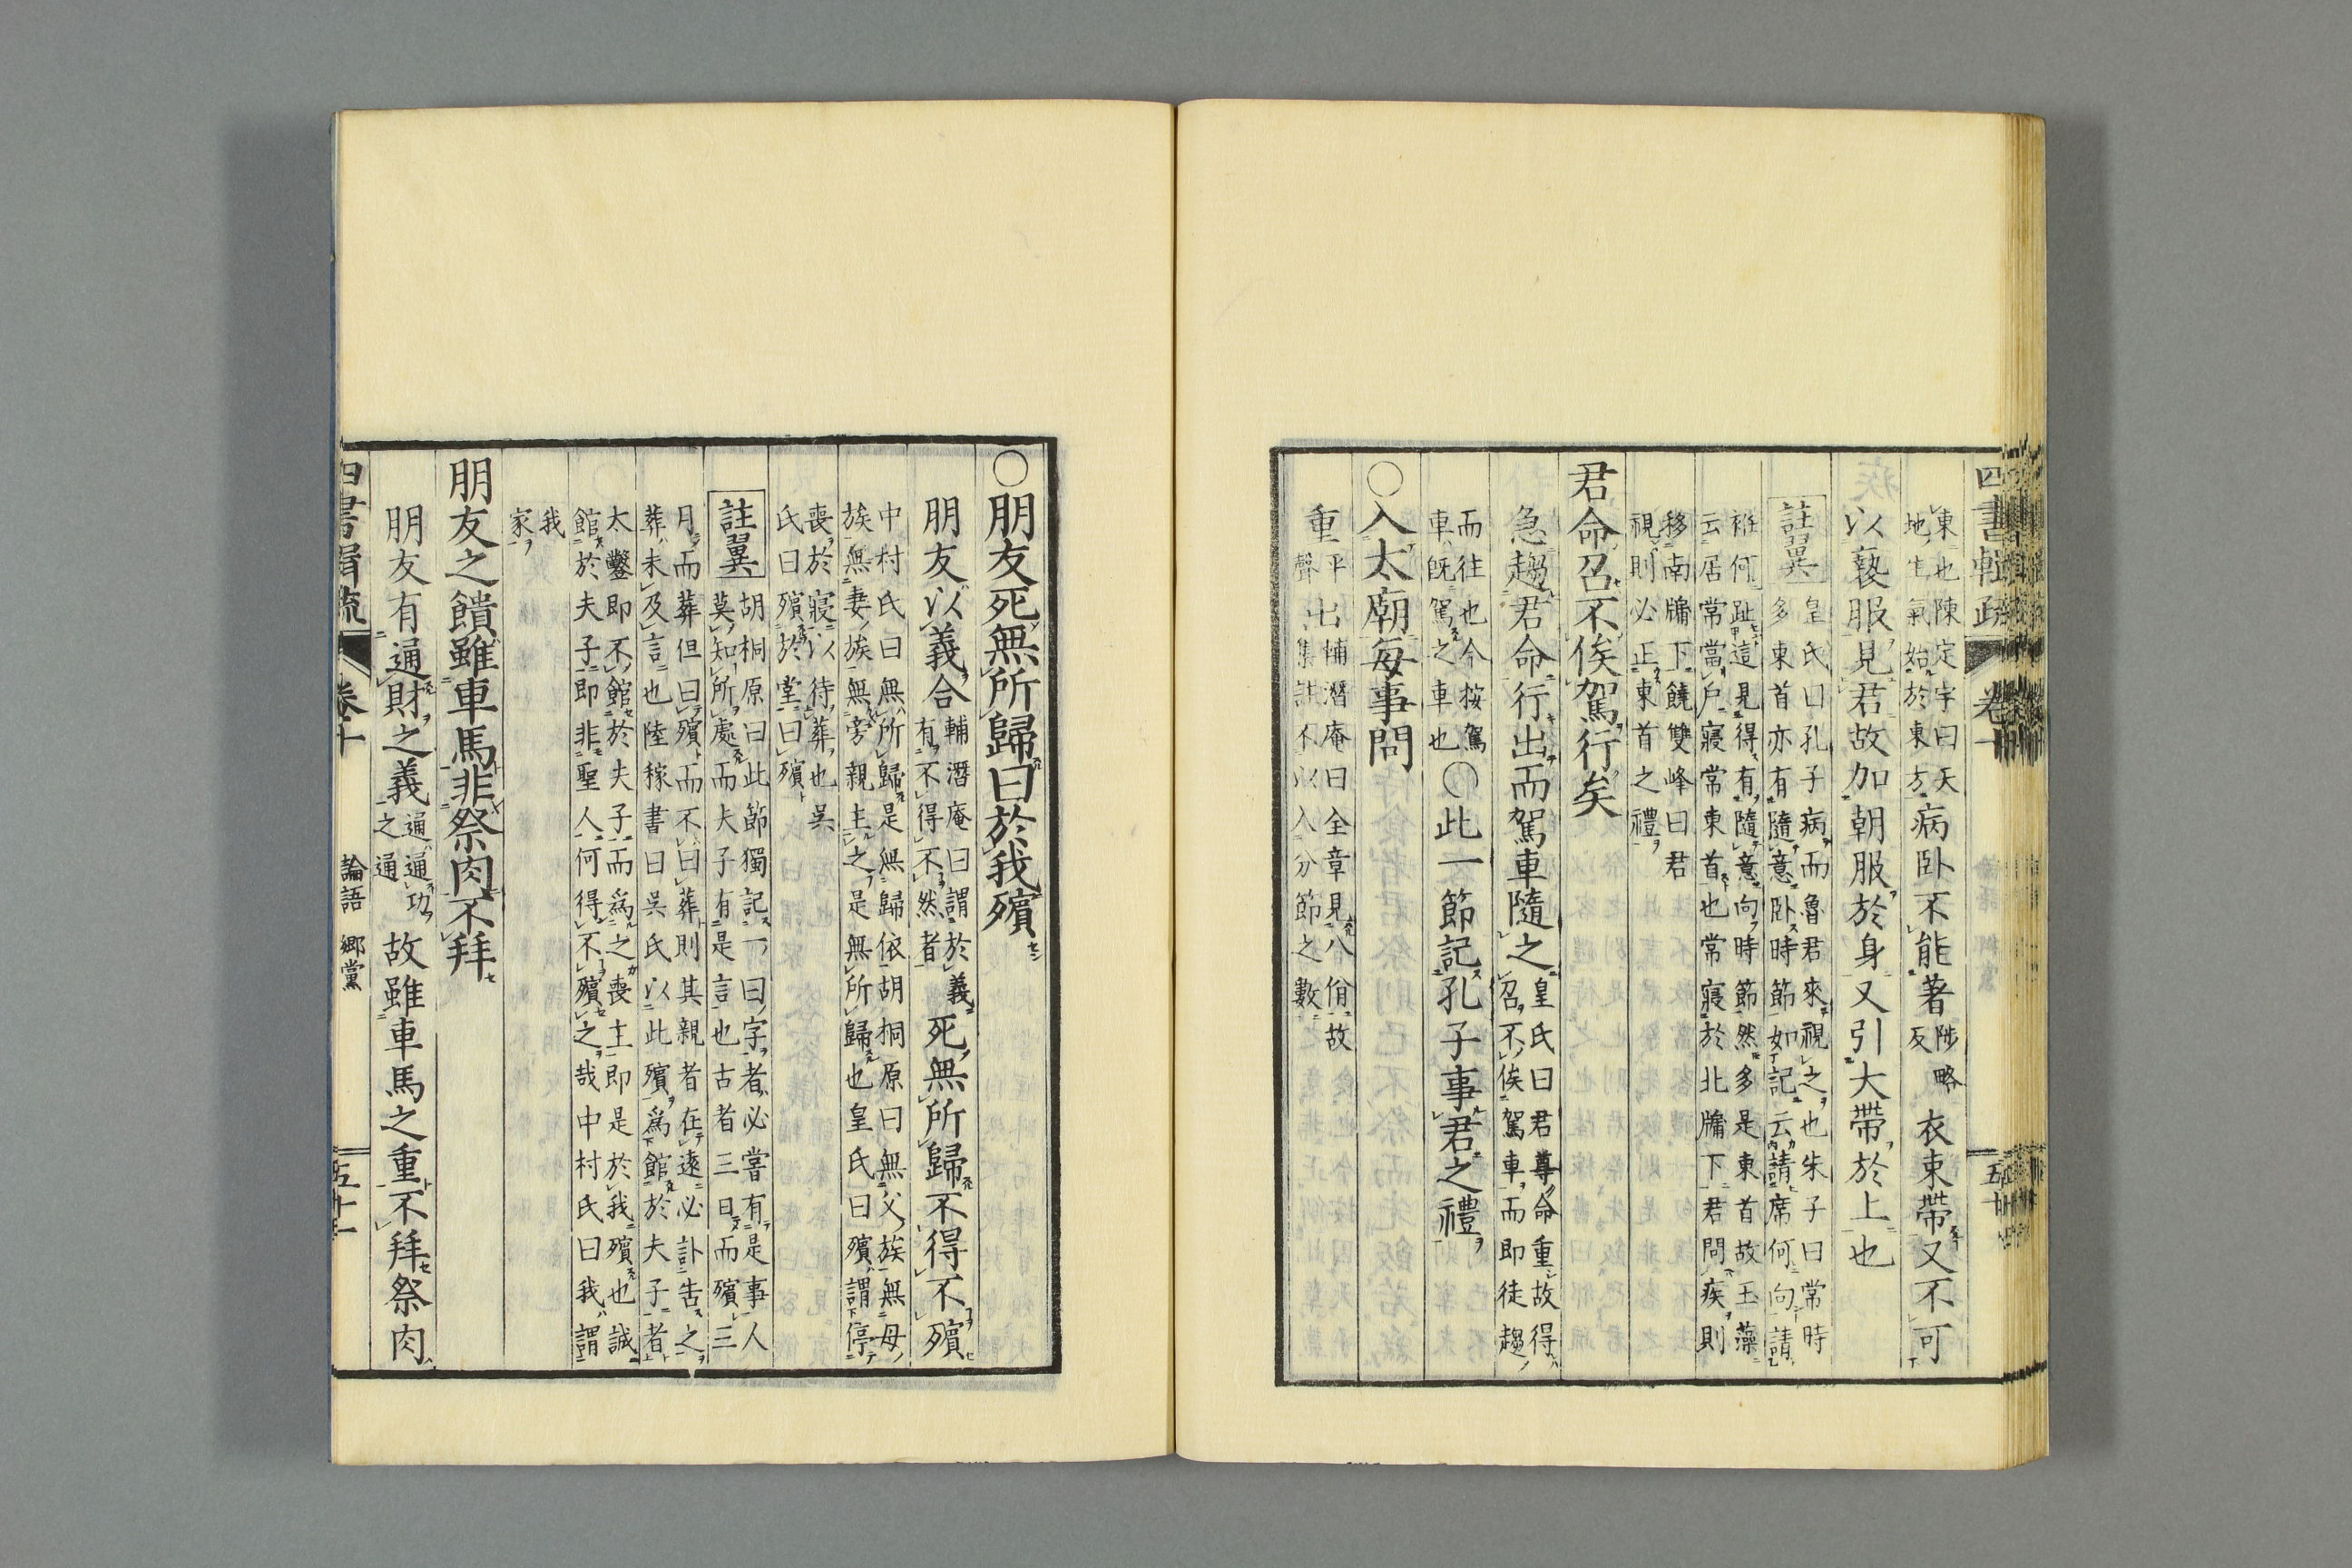 四書輯疏 卷十 五十
東也陳定宇曰天
地生氣始於東方
病卧不能著
陟略
反
衣束帶又不可
以褻服見君故加朝服於身又引大帶於上也
註翼
皇氏曰孔子病而魯君來視之也朱子曰常時
多東首亦有隨意卧時節如記云請席何向請
衽何趾這見得有隨意向時節然多是東首故玉藻
云居常當戶寢常東首也常寢於北牖下君問疾則
移南牖下饒雙峰曰君
視則必正東首之禮
君命召不俟駕行矣
急趨君命行出而駕車隨之
皇氏曰君尊命重故得
召不俟駕車而即徒趨
而往也今按駕
車既駕之車也
○此一節記孔子事君之禮
○入太廟每事問
重
平
聲
出
輔潛庵曰全章見八佾故
集註不以入分節之數
○朋友死無所歸曰於我殯
朋友以義合
輔潛庵曰謂於義
有不得不然者
死無所歸不得不殯
中村氏曰無所歸是無歸依胡桐原曰無父族無母
族無妻族無旁親主之是無所歸也皇氏曰殯謂停
喪於寢以待葬也吳
氏曰殯於堂曰殯
註翼
胡桐原曰此節獨記一曰字者必嘗有是事人
莫知所處而夫子有是言也古者三日而殯三
月而葬但曰殯而不曰葬則其親者在遠必訃告之
葬未及言也陸稼書曰吳氏以此殯爲館於夫子者
太鑿即不館於夫子而爲之喪主即是於我殯也誠
館於夫子即非聖人何得不殯之哉中村氏曰我謂
我
家
朋友之饋雖車馬非祭肉不拜
朋友有通財之義
通通功
之通
故雖車馬之重不拜祭肉
四書輯疏 卷十 論語 鄉黨 五十一